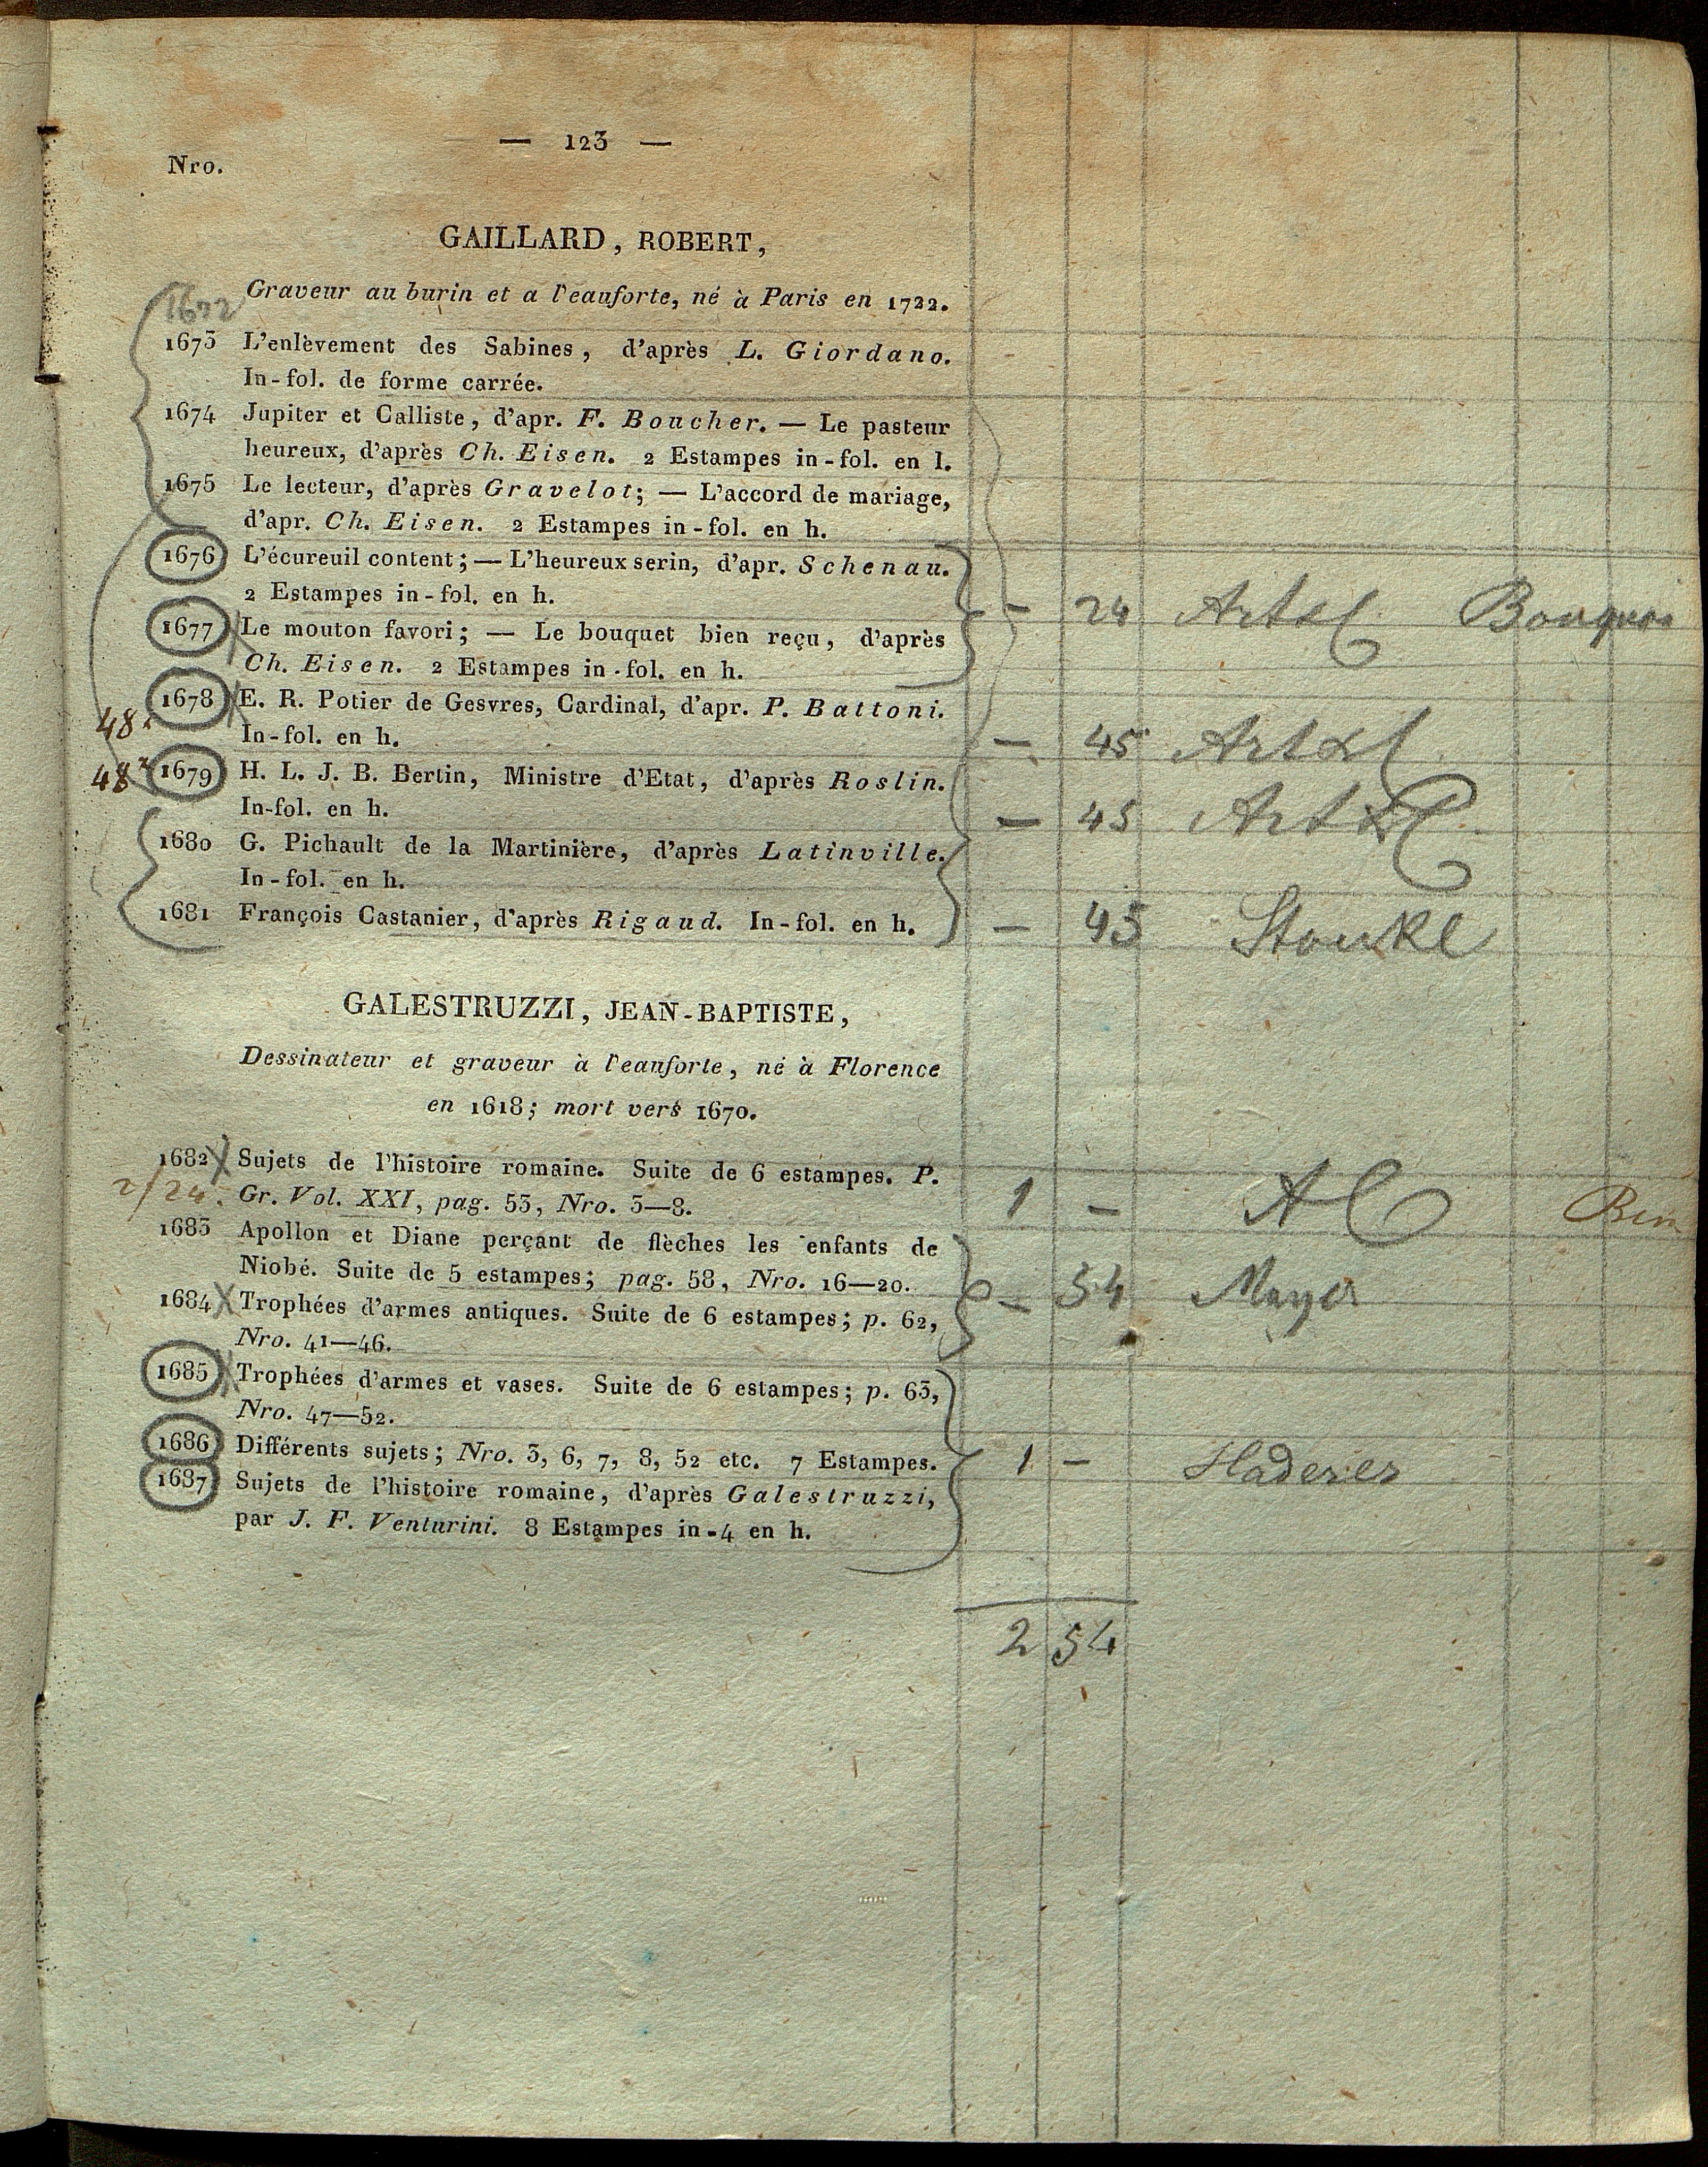 — 123 —
Nro.
GAILLARD, ROBERT,
Graveur au burin et a l'eauforte, né à Paris en 1722.
1672
1673 L'enlèvement des Sabines, d'après L. Giordano.
In-fol. de forme carrée.
1674 Jupiter et Calliste, d'apr. F. Boucher. — Le pasteur
heureux, d'après Ch. Eisen. 2 Estampes in-fol. en l.
1675 Le lecteur, d'après Gravelot; — L'accord de mariage,
d'apr. Ch. Eisen. 2 Estampes in-fol. en h.
1676 L'écureuil content; — L'heureux serin, d'apr. Schenau.
2 Estampes in-fol. en h. — 24 Artxl
1677 Le mouton favori; — Le bouquet bien reçu, d'après
Ch. Eisen. 2 Estampes in-fol. en h.
1678 E. R. Potier de Gesvres, Cardinal, d'apr. P. Battoni.
48 x In-fol. en h. — 45 Artxl
48 x 1679 H. L. J. B. Bertin, Ministre d'Etat, d'après Roslin.
In-fol. en h. — 45 Artxl
1680 G. Pichault de la Martinière, d'après Latinville.
In-fol. en h.
1681 François Castanier, d'après Rigaud. In-fol. en h. — 45 Stoukl
GALESTRUZZI, JEAN-BAPTISTE,
Dessinateur et graveur à l'eauforte, né à Florence
en 1618; mort vers 1670.
1682 X Sujets de l'histoire romaine. Suite de 6 estampes. P.
2/24. Gr. Vol. XXI, pag. 53, Nro. 3—8. 1 — A
1683 Apollon et Diane perçant de flèches les enfants de
Niobé. Suite de 5 estampes; pag. 58, Nro. 16—20. — 54 Mayer
1684 X Trophées d'armes antiques. Suite de 6 estampes; p. 62,
Nro. 41—46.
1685 X Trophées d'armes et vases. Suite de 6 estampes; p. 63,
Nro. 47—52.
1686 Différents sujets; Nro. 3, 6, 7, 8, 52 etc. 7 Estampes. 1 — Haderer
1687 Sujets de l'histoire romaine, d'après Galestruzzi,
par J. F. Venturini. 8 Estampes in-4 en h.
2 54